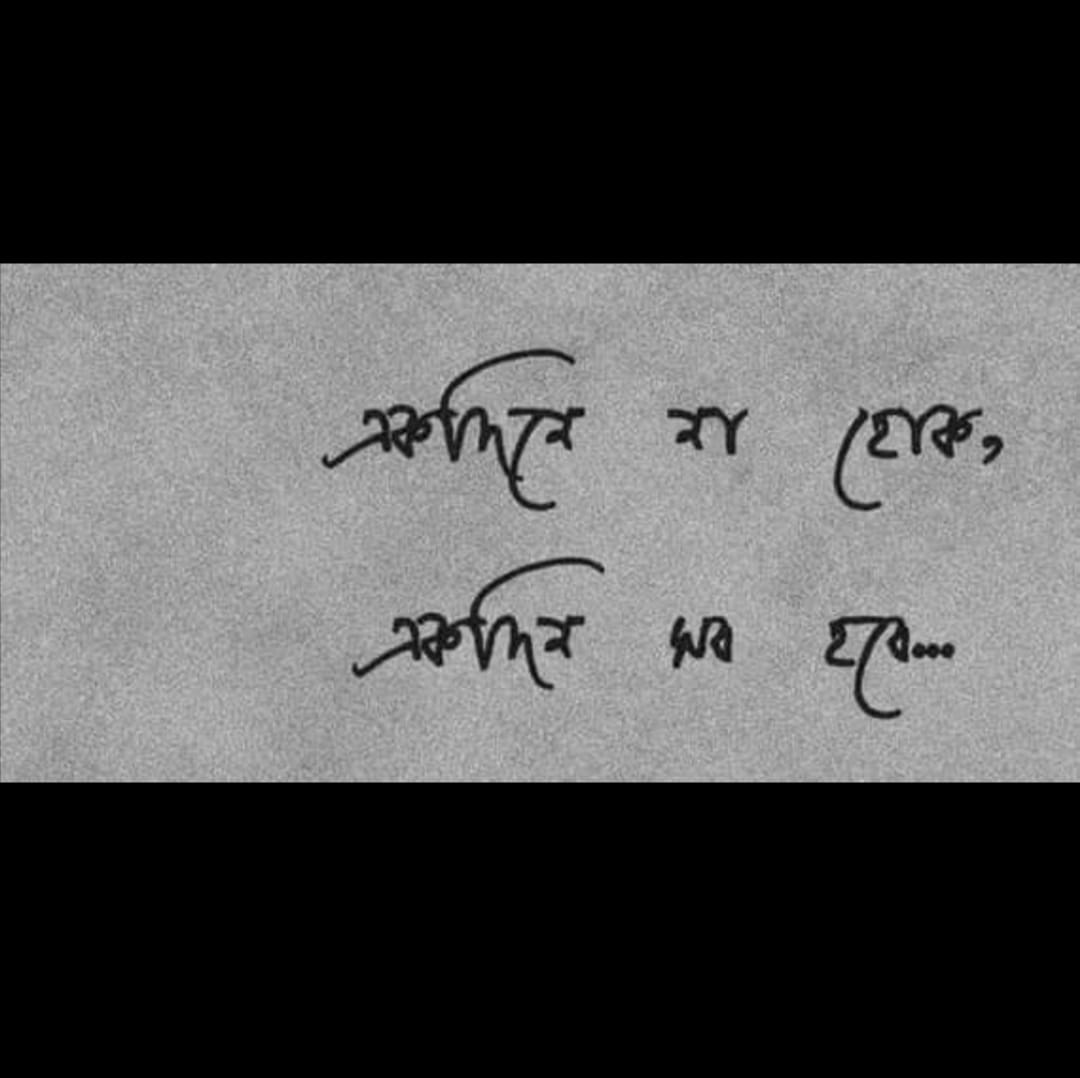 একদিনে না হোক,
একদিন সব হবে...